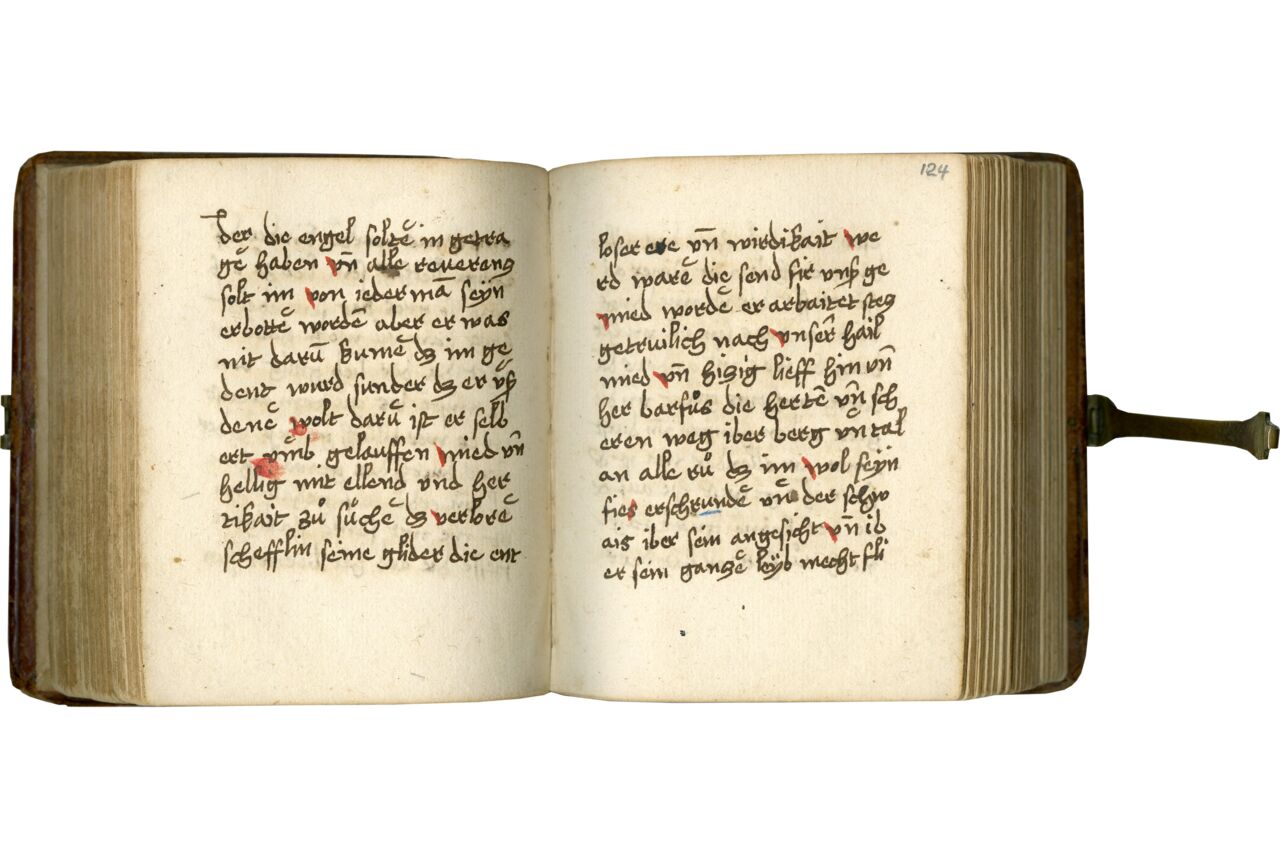 der die engel soltē im getra
gē haben vn̄ alle reuerenz
solt im von iedermā seyn
erbottē wordē aber er was
nit darū kumē dz im ge
dent wurd sunder dz er vß
denē wolt darū ist er selb
ert vmb gelauffen mied vn̄
hellig mit ellend vnd her
tikait zů sůchē dz verlorē
schefflin seine glider die ent
124
loser ere vn̄ wirdikait we
rd warē die send fir vnß ge
mied wordē er arbaitet stez
getruilich nach vnser̄ hail
mied vn̄ hizig lieff hin vn̄
her barfůs die hertē vn̄ sch
eren weg iber berg vn̄ tal
an alle rů dz im wol seyn
fies erschrundē vn̄ der schw
ais iber sein angesicht vn̄ ib
er sein ganzē leyb mecht fli